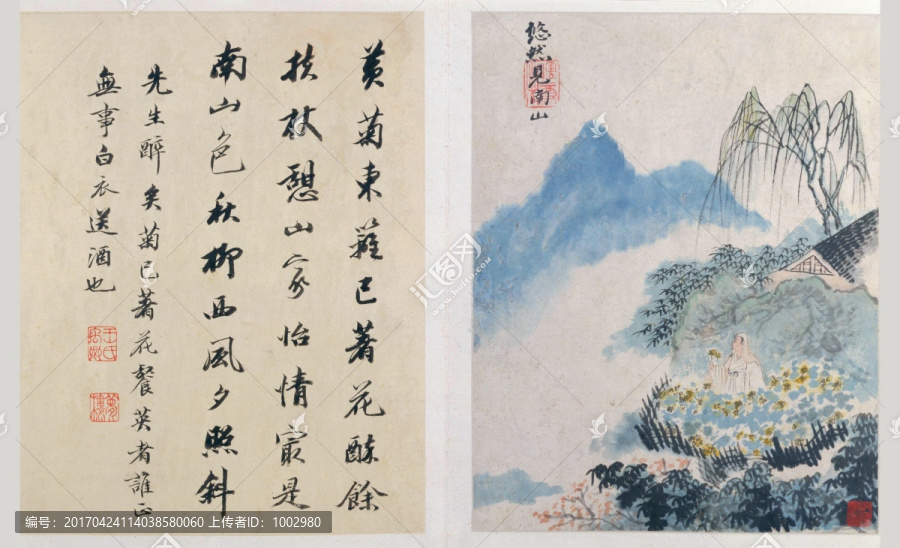 黄菊東籬已著花餘
扶杖憩山家怡情㝡是
南山色秋柳西風夕照斜
先生醉矣菊已著花餐英者誰正
無事白衣送酒也
王氏禹卿
夢樓
悠然見南山
编号：20170424114038580060 上传者ID：1002980